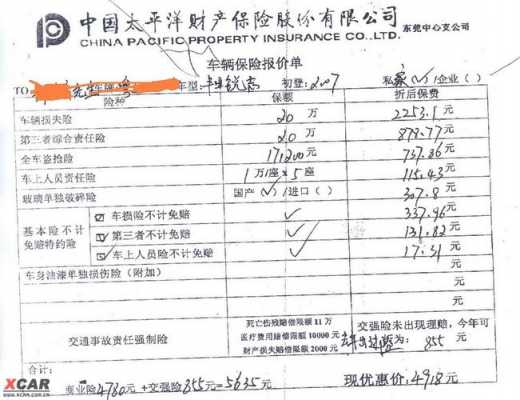 中国太平洋财产保险股份有限公司 东莞中心支公司
CHINA PACIFIC PROPERTY INSURANCE CO.,LTD.
车辆保险报价单
TO 先生 车型: 锐志 初登: 2007 私家(✓)/企业( )
险种 保额 折后保费
车辆损失险 20 万 2253.1 元
第三者综合责任险 20 万 879.77 元
全车盗抢险 171200元 737.86 元
车上人员责任险 1 万/座*5 座 115.43 元
玻璃单独破碎险 国产(✓)/进口( ) 307.8 元
基本险不计免赔特约险
☑ 车损险不计免赔 ✓ 337.96 元
☑ 第三者不计免赔 ✓ 131.82 元
☑ 车上人员险不计免赔 ✓ 17.31 元
车身油漆单独损伤险(附加) 元
元
交通事故责任强制险
死亡伤残赔偿限额 11 万
医疗费用赔偿限额 10000 元
财产损失赔偿限额 2000 元
交强险未出现理赔,今年可
为: 855 元
合计:
商业险4780元 +交强险855元=5635元 现优惠价:4918元
XCAR
WWW.XCAR.COM.CN